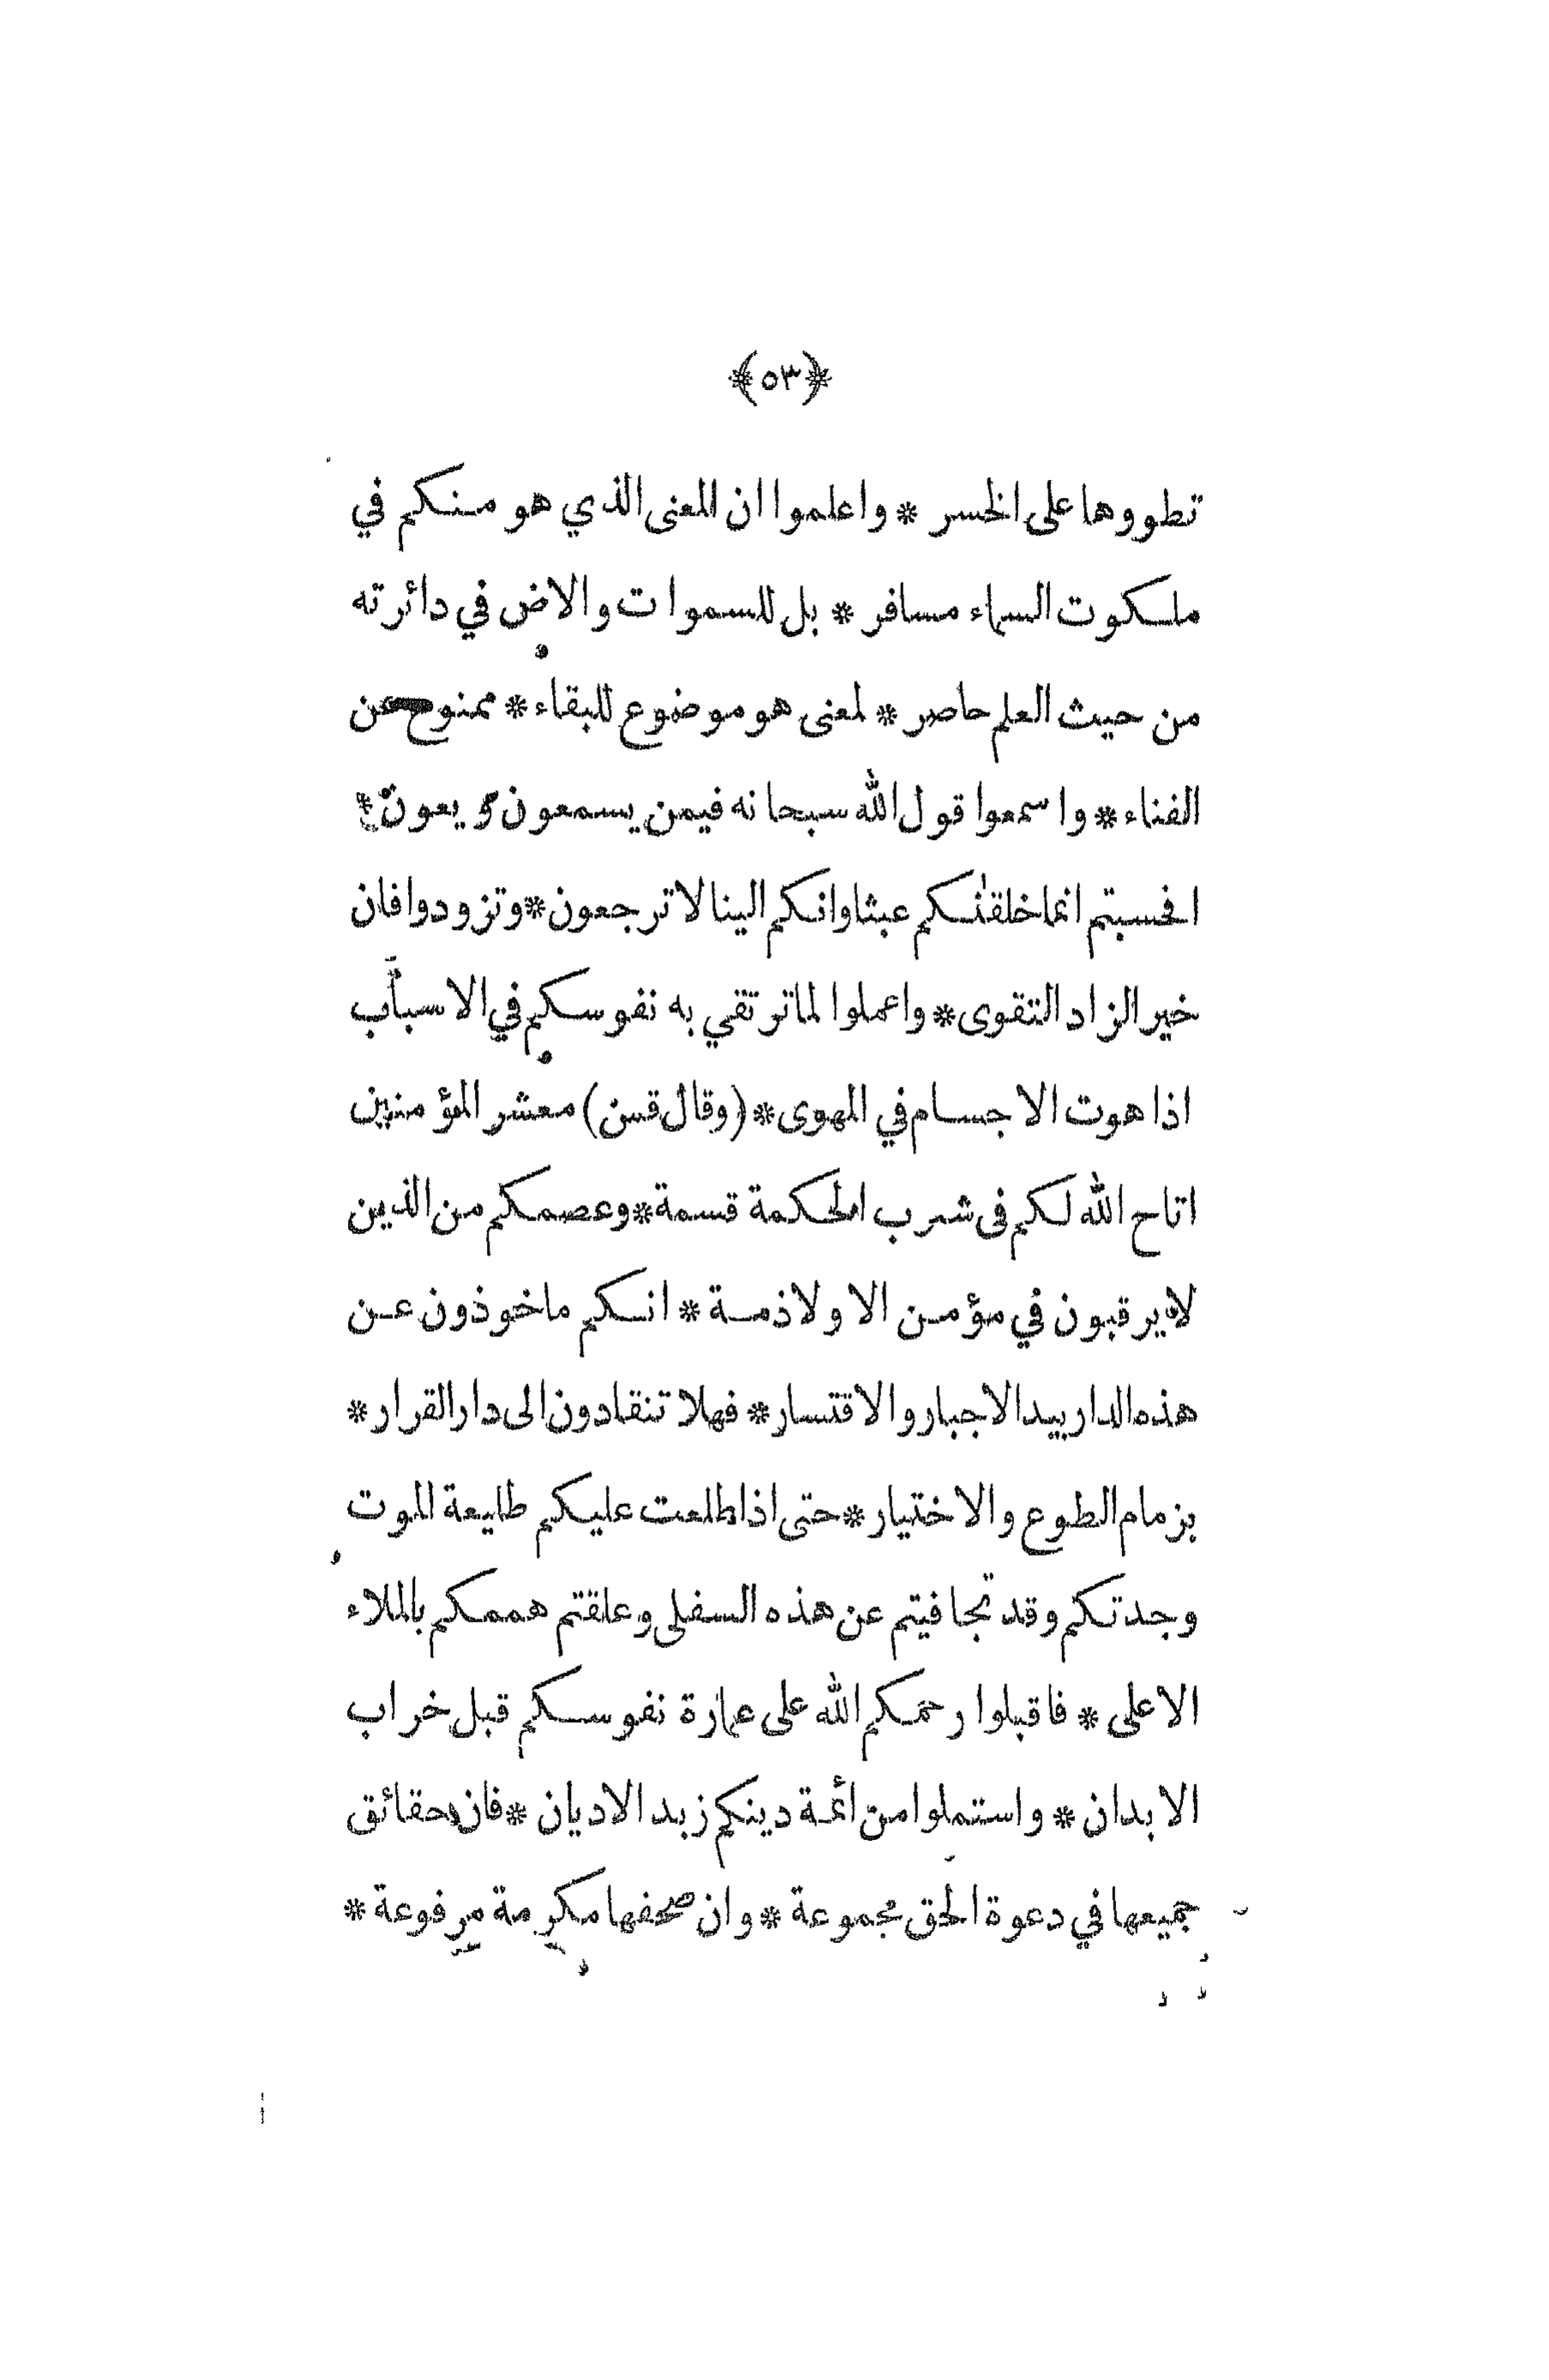 ﴿٥٣﴾
تطووها على الخسر * واعلموا ان المعنى الذي هو منكم في
ملكوت السماء مسافر * بل للسموات والاض في دائرته
من حيث العلم حاصر * لمعنى هو موضوع للبقاء * ممنوح عن
الفناء * واسمعوا قول الله سبحانه فيمن يسمعون و يعون *
افحسبتم انما خلقنٰكم عبثا وانكم الينا لا ترجعون * وتزودوا فان
خير الزاد التقوى * واعملوا لما ترتقي به نفوسكم في الاسباب
اذا هوت الاجسام في المهوى * (وقال قس) معشر المؤمنين
اتاح الله لكم فى شرب الحكمة قسمة * وعصمكم من الذين
لا يرقبون في مؤمن الا ولا ذمة * انكم ماخوذون عن
هذه الدار بيد الاجبار والاقتسار * فهلا تنقادون الى دار القرار *
بزمام الطوع والاختيار * حتى اذا طلعت عليكم طليعة الموت
وجدتكم وقد تجافيتم عن هذه السفلى وعلقتم هممكم بالملاء
الاعلى * فاقبلوا رحمكم الله على عمارة نفوسكم قبل خراب
الابدان * واستملوا من أئمة دينكم زبد الاديان * فان حقائق
جميعها في دعوة الحق مجموعة * وان صحفها مكرمة مرفوعة *